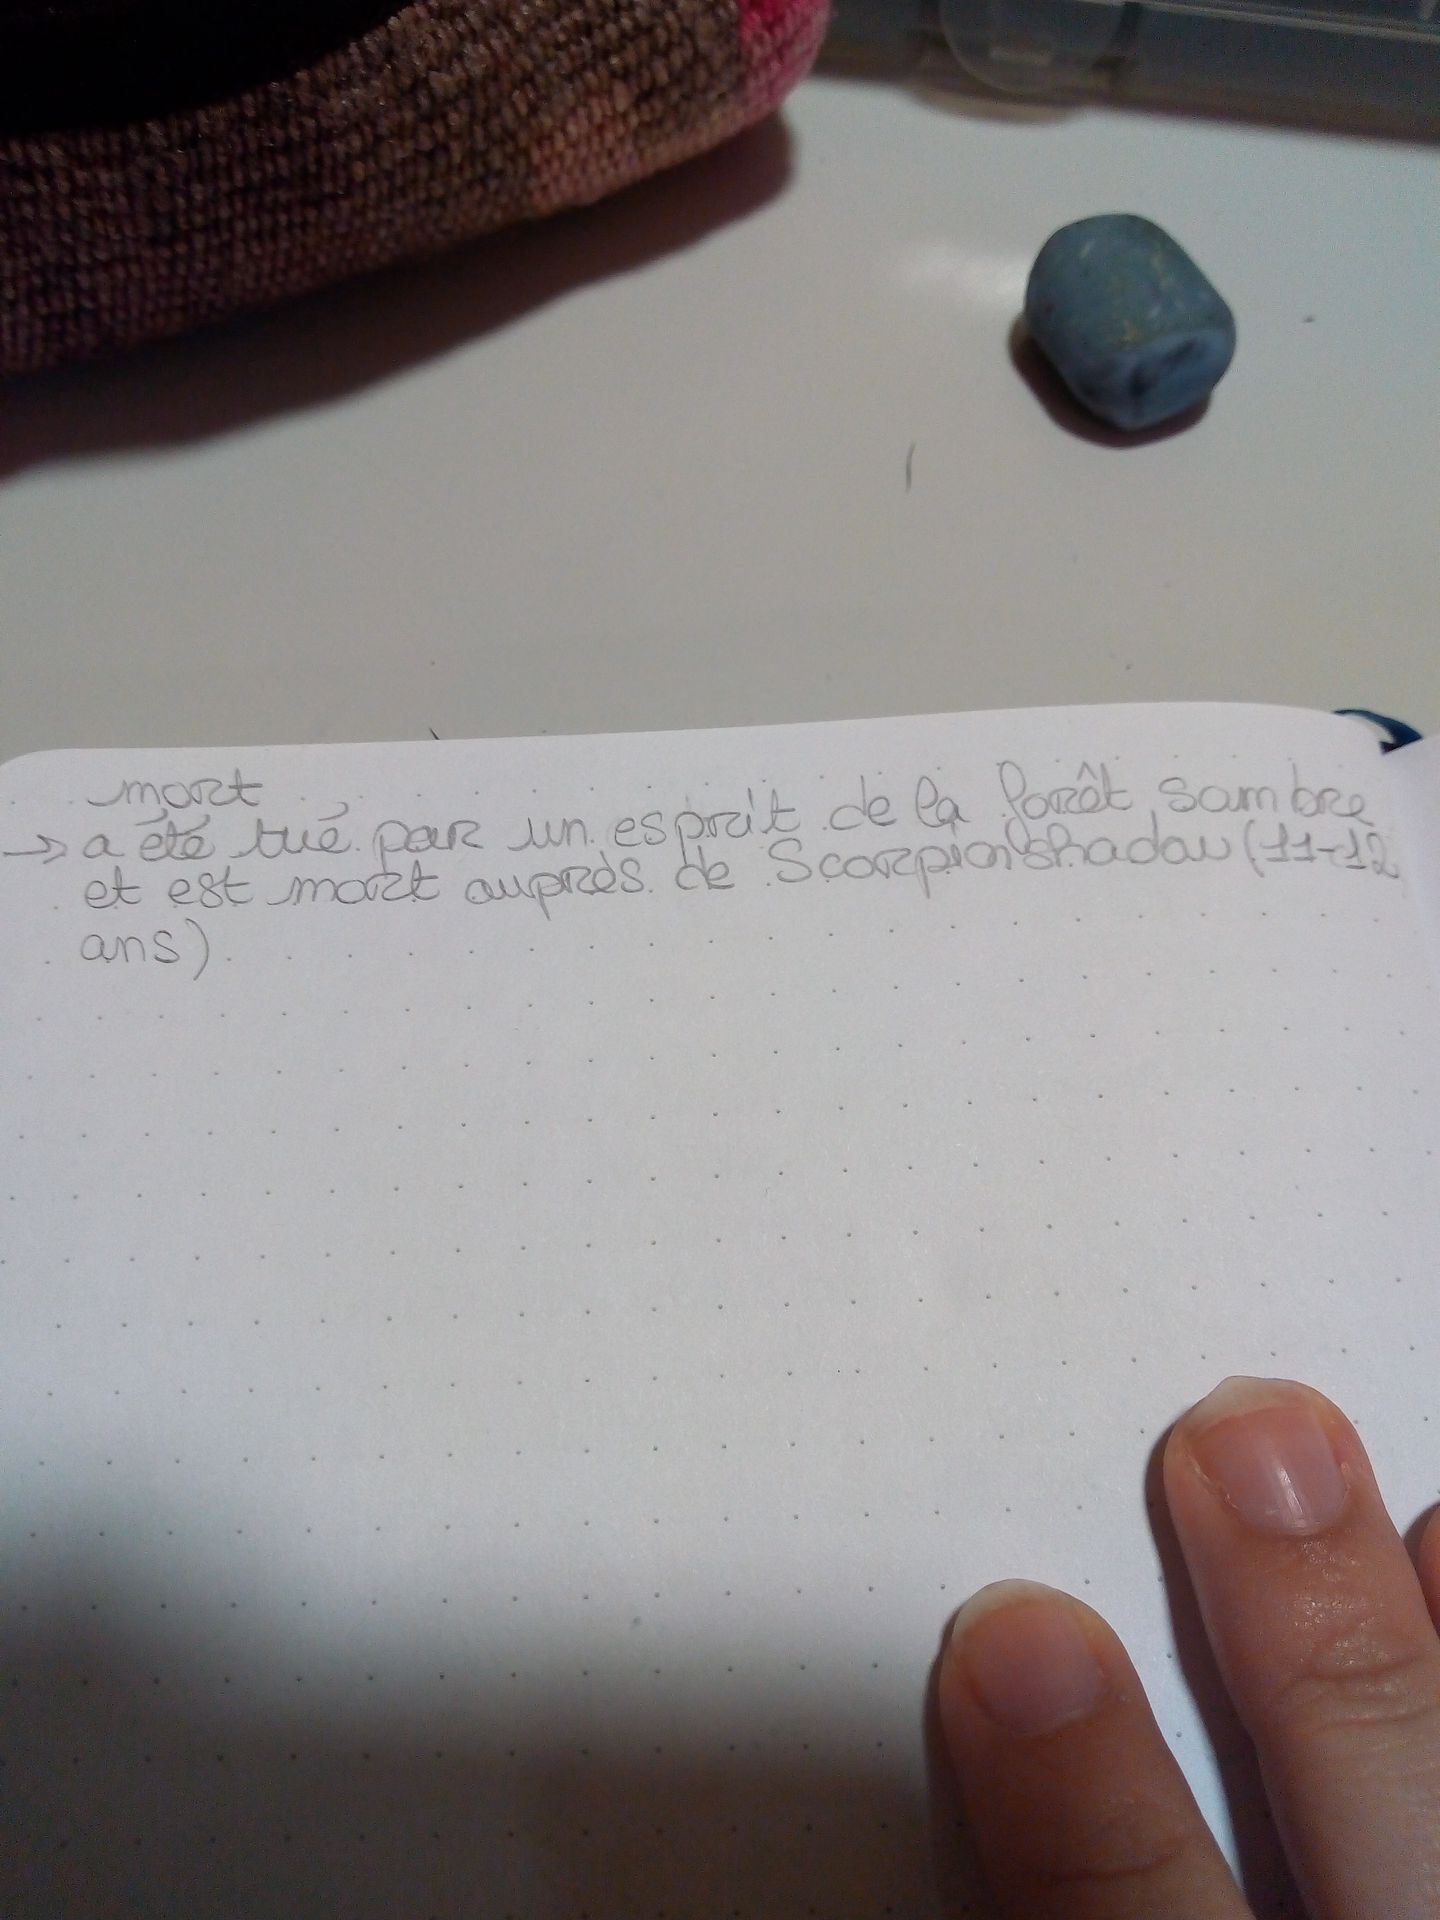 mort
→ a été tué par un esprit de la forêt sombre
et est mort auprès de Scorpion Shadow (11-12
ans).